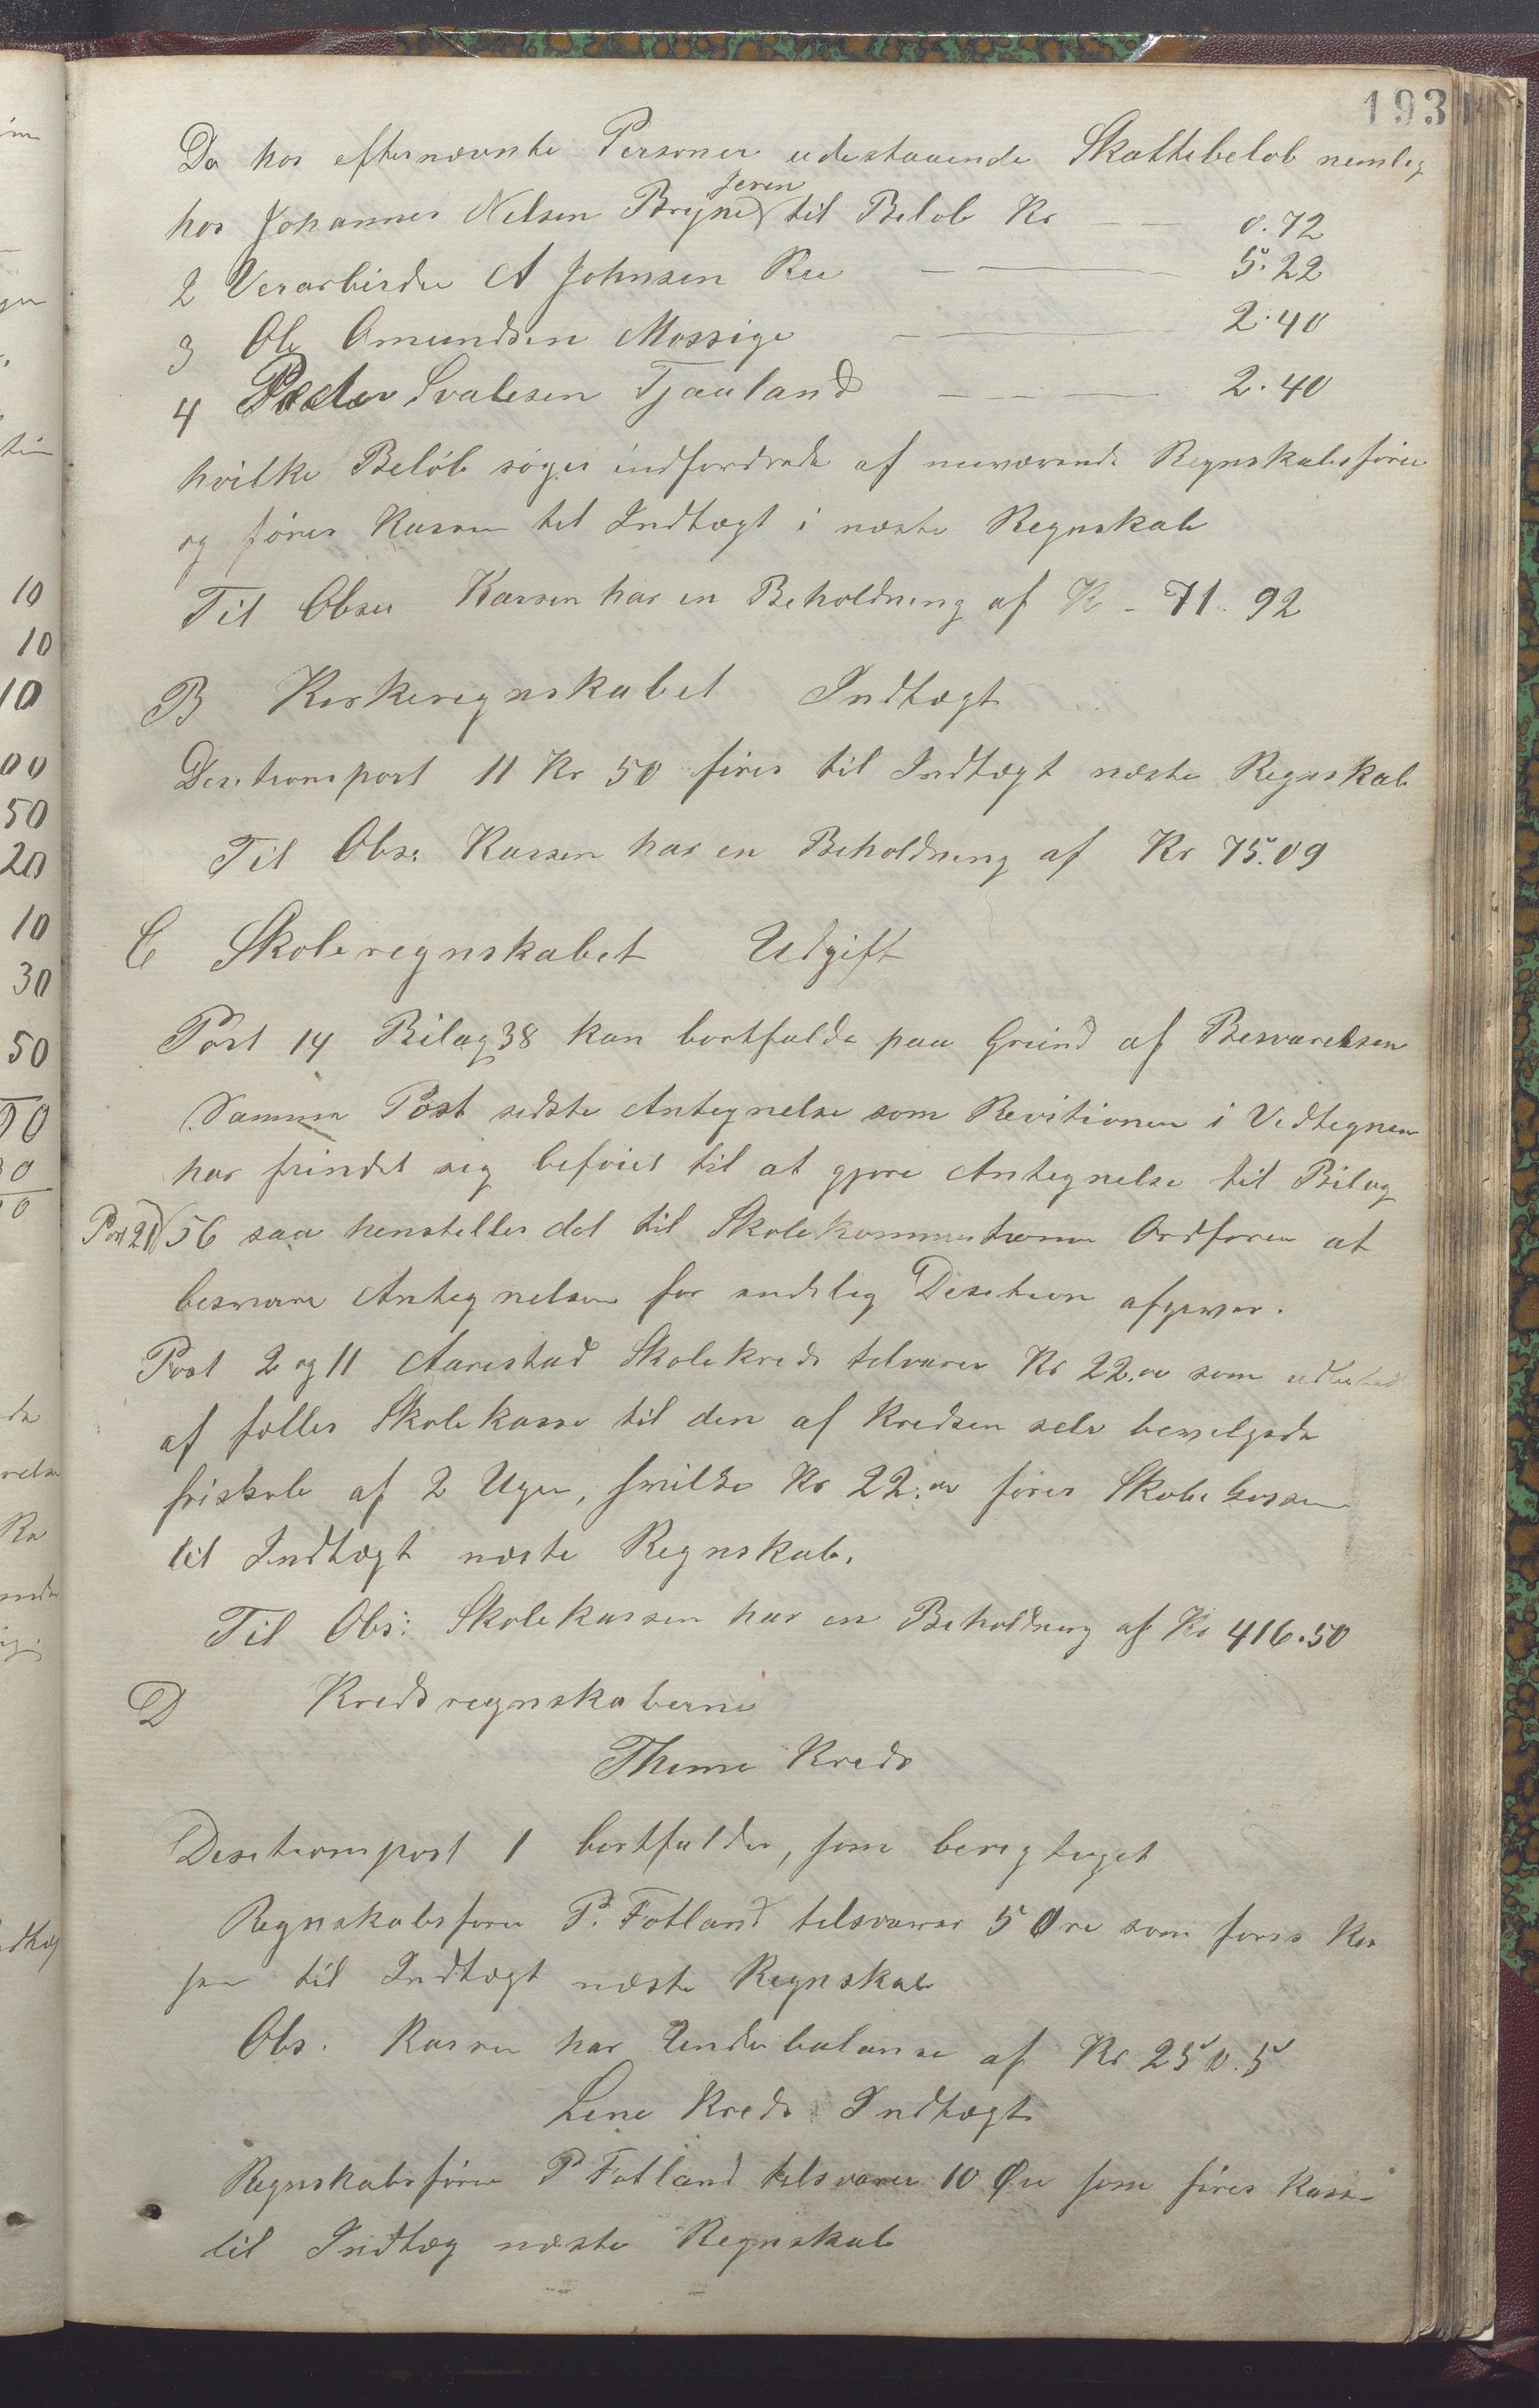 193
De hos efternævnte Personer udestaaende Skattebeløb nemlig
hos Johannes Nilsen Bryne Jeren til Beløb Kr — — 0.72
2 Verarbeider A Johnsen Ree — — 5.22
3 Ole Omundsen Mossige — — 2.40
4 Peder Svalesen Tjaaland — — 2.40
hvilke Beløb søges indfordrede af nuværende Regnskabsfører
og føres Kassen til Indtægt i næste Regnskab
Til Obser Kassen har en Beholdning af Kr - 71. 92
B Kirkeregnskabet Indtægt
Desitionspost 11 Kr 50 føres til Indtægt næste Regnskab
Til Obs: Kassen har en Beholdning af Kr 75.09
C Skoleregnskabet Udgift
Post 14 Bilag 38 kan bortfalde paa Grund af Besvarelsen
Samme Post sidste Antegnelse som Revitionen i Vedtegnen
har fundet sig beføiet til at gjøre Antegnelse til Bilag
Post 21 56 saa henstilles det til Skolekommitionens Ordfører at
besvare Antegnelsen før endelig Desition afgives.
Post 2 og 11 Aarestad Skolekreds tilsvarer Kr 22.00 som udbetalt
af fælles Skolekasse til den af Kredsen selv bevilgede
friskole af 2 Uger, hvilke Kr 22.00 føres Skolekassen
til Indtægt næste Regnskab.
Til Obs: Skolekassen har en Beholdning af Kr 416.50
D Kredsregnskaberne
Thime Kreds
Desitionspost 1 bortfalder, som berigtiget
Regnskabsfører P. Fotland tilsvarer 5 Øre som føres Kas
sen til Indtægt næste Regnskab
Obs. Kassen har Underbalanse af Kr 250.5
Line Kreds Indtægt
Regnskabsfører P Fotland tilsvarer 10 Øre som føres Kassen
til Indtæg næste Regnskab
10
10
10
00
50
20
10
30
50